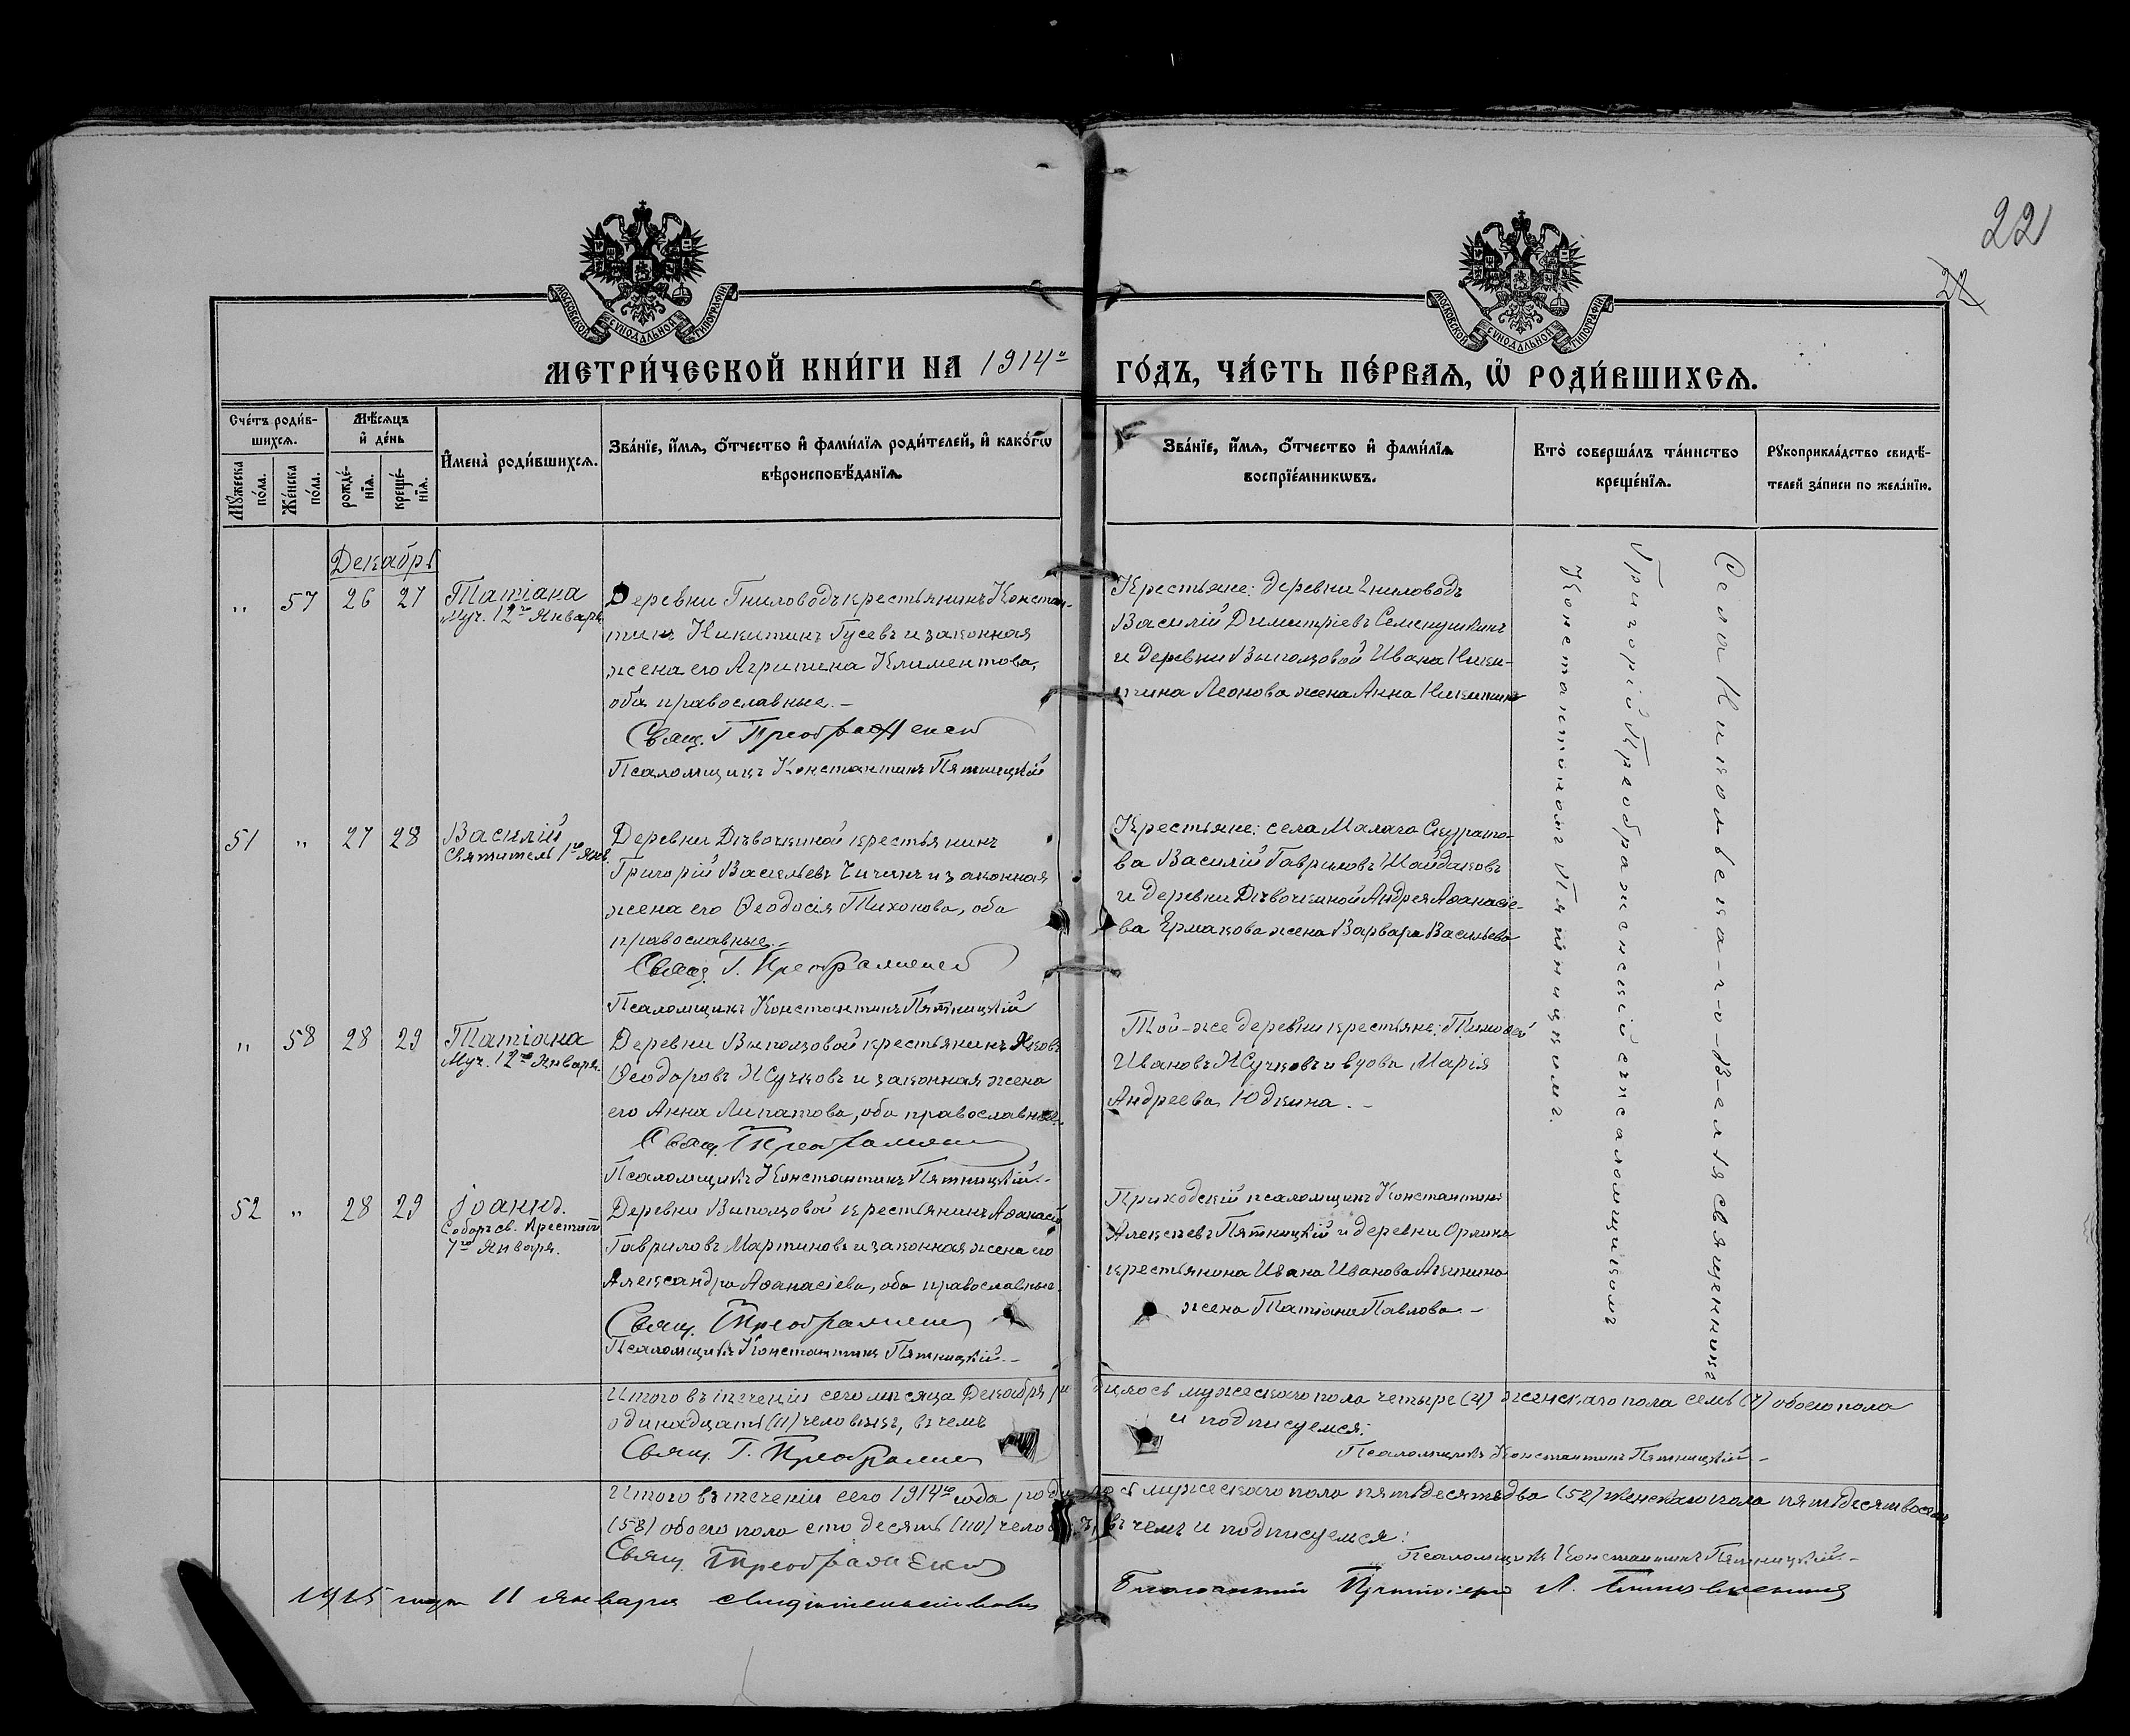 22
22
МОСКОВСКОЙ СѴНОДАЛЬНОЙ ТИПОГРАФІИ
МОСКОВСКОЙ СѴНОДАЛЬНОЙ ТИПОГРАФІИ
МЕТРИ́ЧЕСКОЙ КНИ́ГИ НА 1914й ГО́ДЪ, ЧА́СТЬ ПЕ́РВАѦ, Ѡ҆ РОДИ́ВШИХСѦ.
Сче́тъ роди́в-
шихсѧ.
Мꙋ́жеска
по́ла.
Же́нска
по́ла.
Мѣ́сѧцъ
и҆ де́нь
рожде́-
нїѧ.
креще́-
нїѧ.
И҆мена̀ роди́вшихсѧ.
Зва́нїе, и҆́мѧ, ѻ҆́тчество и҆ фами́лїѧ роди́телей, и҆ како́гѡ
вѣроисповѣ́данїѧ.
Зва́нїе, и҆́мѧ, ѻ҆́тчество и҆ фами́лїѧ
воспрїе́мникѡвъ.
Кто̀ соверша́лъ та́инство
креще́нїѧ.
Рꙋкоприкла́дство свидѣ́-
телей за́писи по жела́нїю.
Декабрь
„ 57 26 27
Татіана
Муч. 12го Январь
Деревни Гниловодъ крестьянинъ Констан-
тинъ Никитинъ Гусевъ и законная
жена его Агрипина Климентова,
оба православные. –
Свящ. Г Преображенскій
Псаломщикъ Константинъ Пятницкій
Крестьяне: деревни Гниловодъ
Василій Димитріевъ Семенушкинъ
и деревни Выползовой Ивана Ники-
тина Леонова жена Анна Никитина
51 „ 27 28
Василій
Святитель 1го Янв.
Деревни Дѣвочкиной крестьянинъ
Григорій Васильевъ Чичинъ и законная
жена его Ѳеодосія Тихонова, оба
православные. –
Свящ. Г. Преображенскій
Псаломщикъ Константинъ Пятницкій
Крестьяне: села Малаго Скурато-
ва Василій Гавриловъ Шайдаковъ
и деревни Дѣвочкиной Андрея Аѳанасіе-
ва Ермакова жена Варвара Васильева
„ 58 28 29
Татіана
Муч. 12го Января.
Деревни Выползовой крестьянинъ Яковъ
Ѳеодоровъ Жучковъ и законная жена
его Анна Липатова, оба православные.
Свящ. Преображенскій
Псаломщикъ Константинъ Пятницкій. –
Той-же деревни крестьяне: Тимоѳей
Ивановъ Жучковъ и вдова Марія
Андреева Юдкина. –
52 „ 28 29
Іоаннъ.
Соборъ св. Крестит
7го Января.
Деревни Выползовой крестьянинъ Аѳанасій
Гавриловъ Мартиновъ и законная жена его
Александра Аѳанасіева, оба православные.
Свящ. Преображенскій
Псаломщикъ Константинъ Пятницкій. –
Приходскій псаломщикъ Константинъ
Алексѣевъ Пятницкій и деревни Орлика
крестьянина Ивана Иванова Аникина
жена Татіана Павлова. –
Села Никольска-г-о-В-елья священникъ
Григорій Преображенскій съ псаломщикомъ
Константиномъ Пятницкимъ.
Итого въ теченіи сего мѣсяца Декабря родилось мужескаго пола четыре (4) женскаго пола семь (7) обоего пола
одинадцать (11) человѣкъ, въ чемъ и подписуемся:
Свящ. Г. Преображенскій
Псаломщикъ Константинъ Пятницкій –
Итого въ теченіи сего 1914го года родилось мужескаго пола пятьдесятъ два (52) женскаго пола пятьдесят восемь
(58) обоего пола сто десять (110) человѣкъ, въ чемъ и подписуемся:
Свящ. Преображенскій
Псаломщикъ Константинъ Пятницкій. –
1915 года 11 января